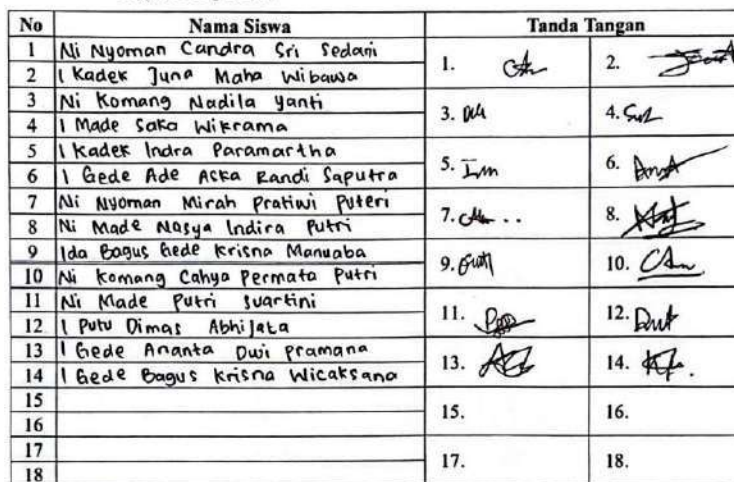 No Nama Siswa Tanda Tangan
1 Ni Nyoman Candra Sri Sedani 1. 2.
2 I Kadek Juna Maha Wibawa
3 Ni Komang Nadila Yanti 3. 4.
4 I Made Saka Wikrama
5 I Kadek Indra Paramartha 5. 6.
6 I Gede Ade Aska Randi Saputra
7 Ni Nyoman Mirah Pratiwi Puteri 7. 8.
8 Ni Made Nasya Indira Putri
9 Ida Bagus Gede Krisna Manuaba 9. 10.
10 Ni Komang Cahya Permata Putri
11 Ni Made Putri Suartini 11. 12.
12 I Putu Dimas Abhijata
13 I Gede Ananta Dwi Pramana 13. 14.
14 I Gede Bagus Krisna Wicaksana
15 15. 16.
16
17 17. 18.
18